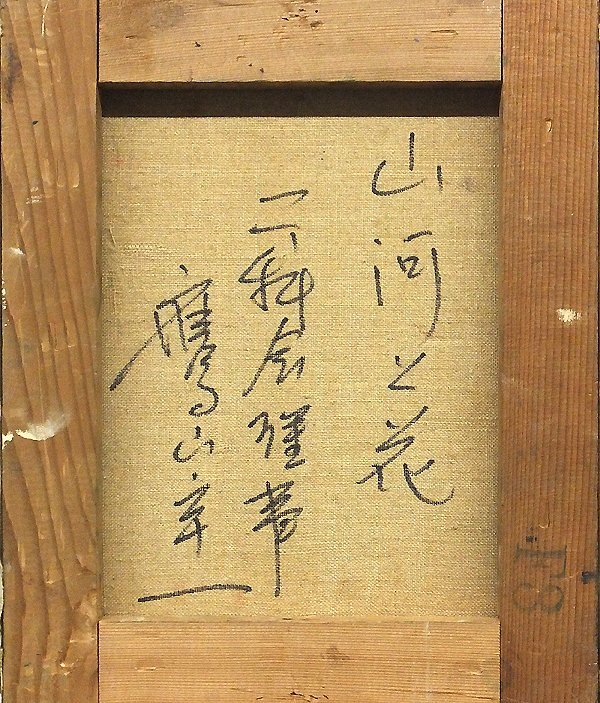 山河と花
二科会理事
鷹山宇一